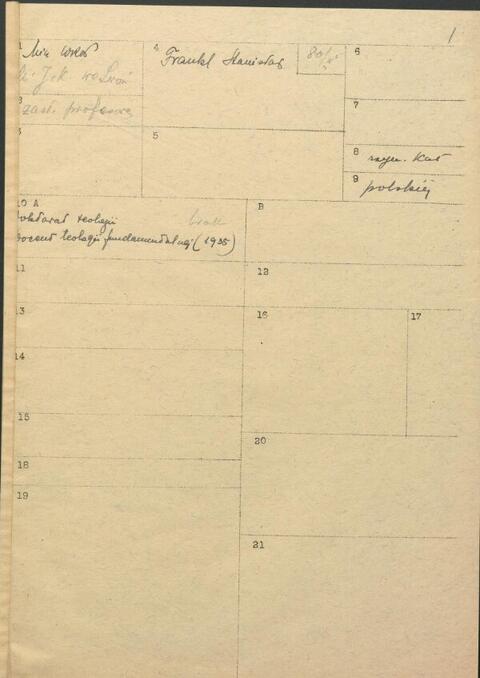 1
1 Min WRiOP
U. J.K. we Lwow
2
zast. profesora
3
4 Frankl Stanisław
5
6
7
8 rzym. Kat
9 polskiej
10 A
doktorat teologii brak
docent teologii fundamentalnej (1935)
B
11
12
13
14
15
16
17
18
19
20
21